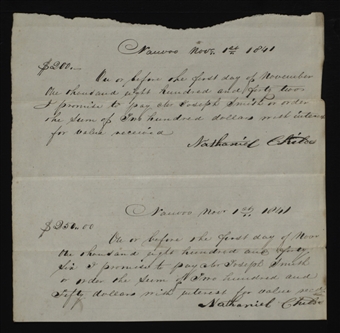 Nauvoo Nov. 1st 1841
$200.—
On or before the first day of November
One thousand eight hundred and forty two
I promise to pay Mr Joseph Smith or order
the Sum of Two hundred dollars with interest
for value received
Nathaniel
Nauvoo Nov 1st 1841
$250.00
On or before the first day of Nov
One thousand eight hundred and forty
Six I promise to pay Mr Joseph Smith
or order the Sum of Two hundred and
Fifty dollars with interest for value
Nathaniel